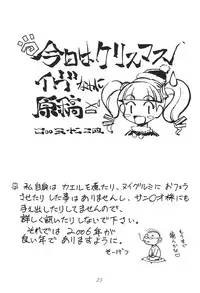 今日はクリスマス
イヴなのに
原稿
二〇〇五・十二・二四
私自身は カエルを虐たり、ヌイグルミにおフェラ
させたりした事はありませんし、サニ〇オ様にも
手え出したりしてませんので、
詳しく訊いたりしないで下さい。
それでは2006年が
良い年でありますように。
23